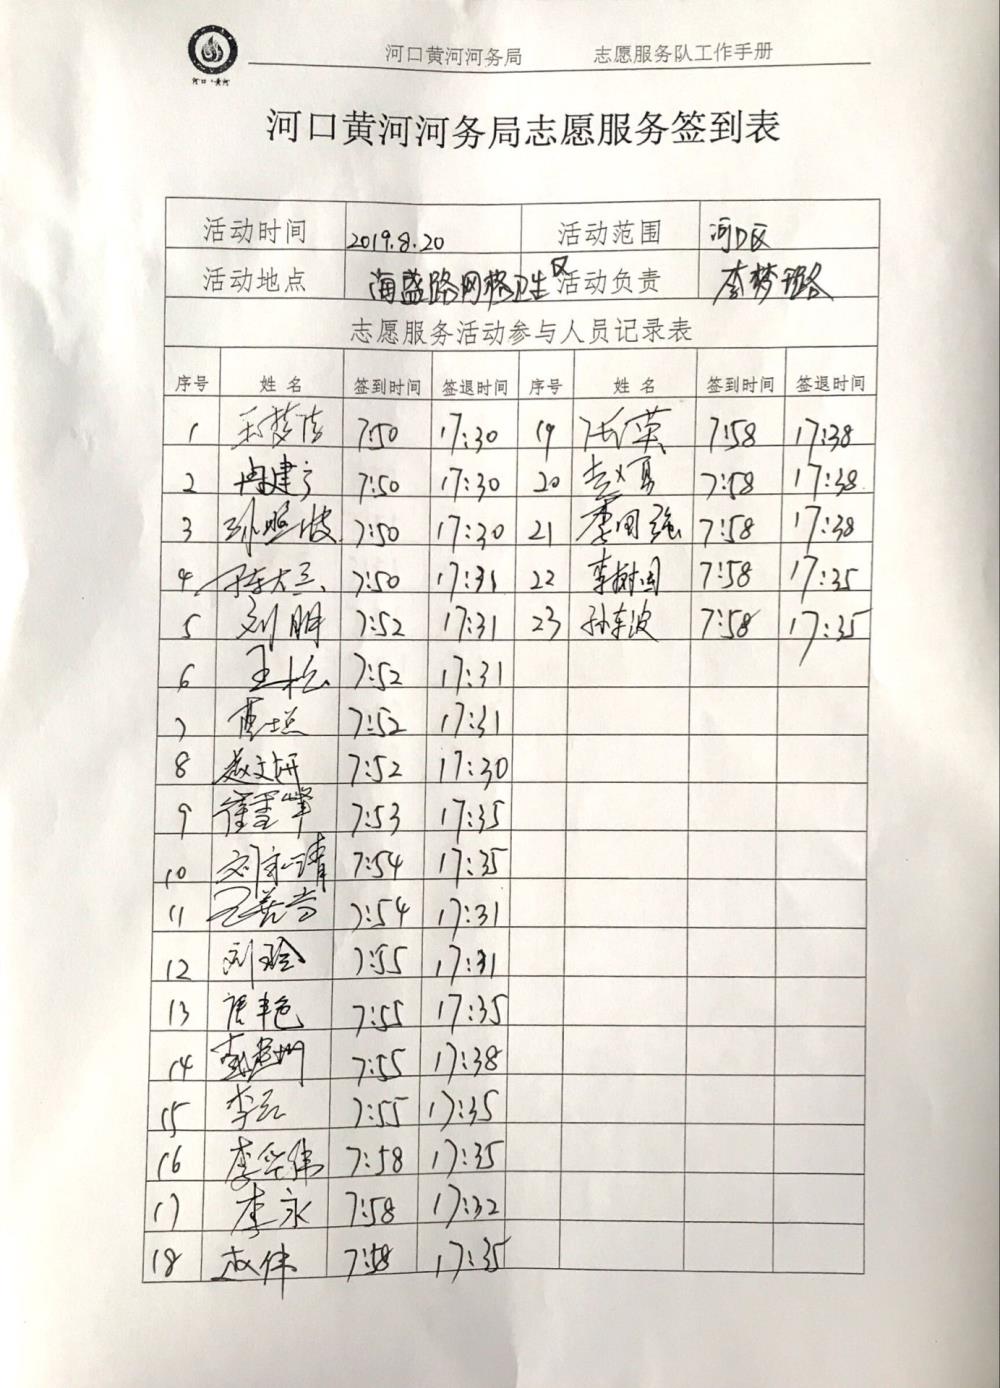 河口·黄河
河口黄河河务局 志愿服务队工作手册
河口黄河河务局志愿服务签到表
活动时间 2019.8.20 活动范围 河口区
活动地点 海盛路网格卫生区 活动负责 李梦璐
志愿服务活动参与人员记录表
序号 姓名 签到时间 签退时间 序号 姓名 签到时间 签退时间
1 7:50 17:30 19 张英 7:58 17:38
2 冉建宁 7:50 17:30 20 7:58 17:38
3 孙照波 7:50 17:30 21 李国强 7:58 17:38
4 7:50 17:31 22 李树国 7:58 17:35
5 刘朋 7:52 17:31 23 孙东波 7:58 17:35
6 王松 7:52 17:31
7 7:52 17:31
8 赵文妍 7:52 17:30
9 7:53 17:35
10 7:54 17:35
11 7:54 17:31
12 刘玲 7:55 17:31
13 7:55 17:35
14 7:55 17:38
15 7:55 17:35
16 李华伟 7:58 17:35
17 李永 7:58 17:32
18 赵伟 7:58 17:35